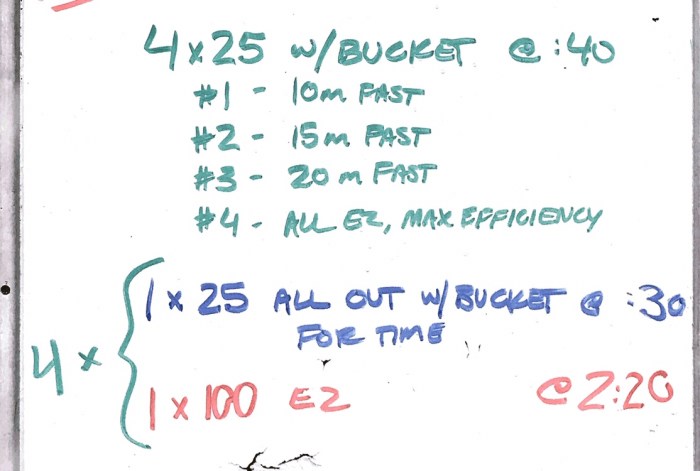 4 x 25 W/BUCKET @ :40
#1 - 10m FAST
#2 - 15m FAST
#3 - 20m FAST
#4 - ALL EZ, MAX EFFICIENCY
4 x
1 x 25 ALL OUT W/BUCKET @ :30
FOR TIME
1 x 100 EZ @ 2:20